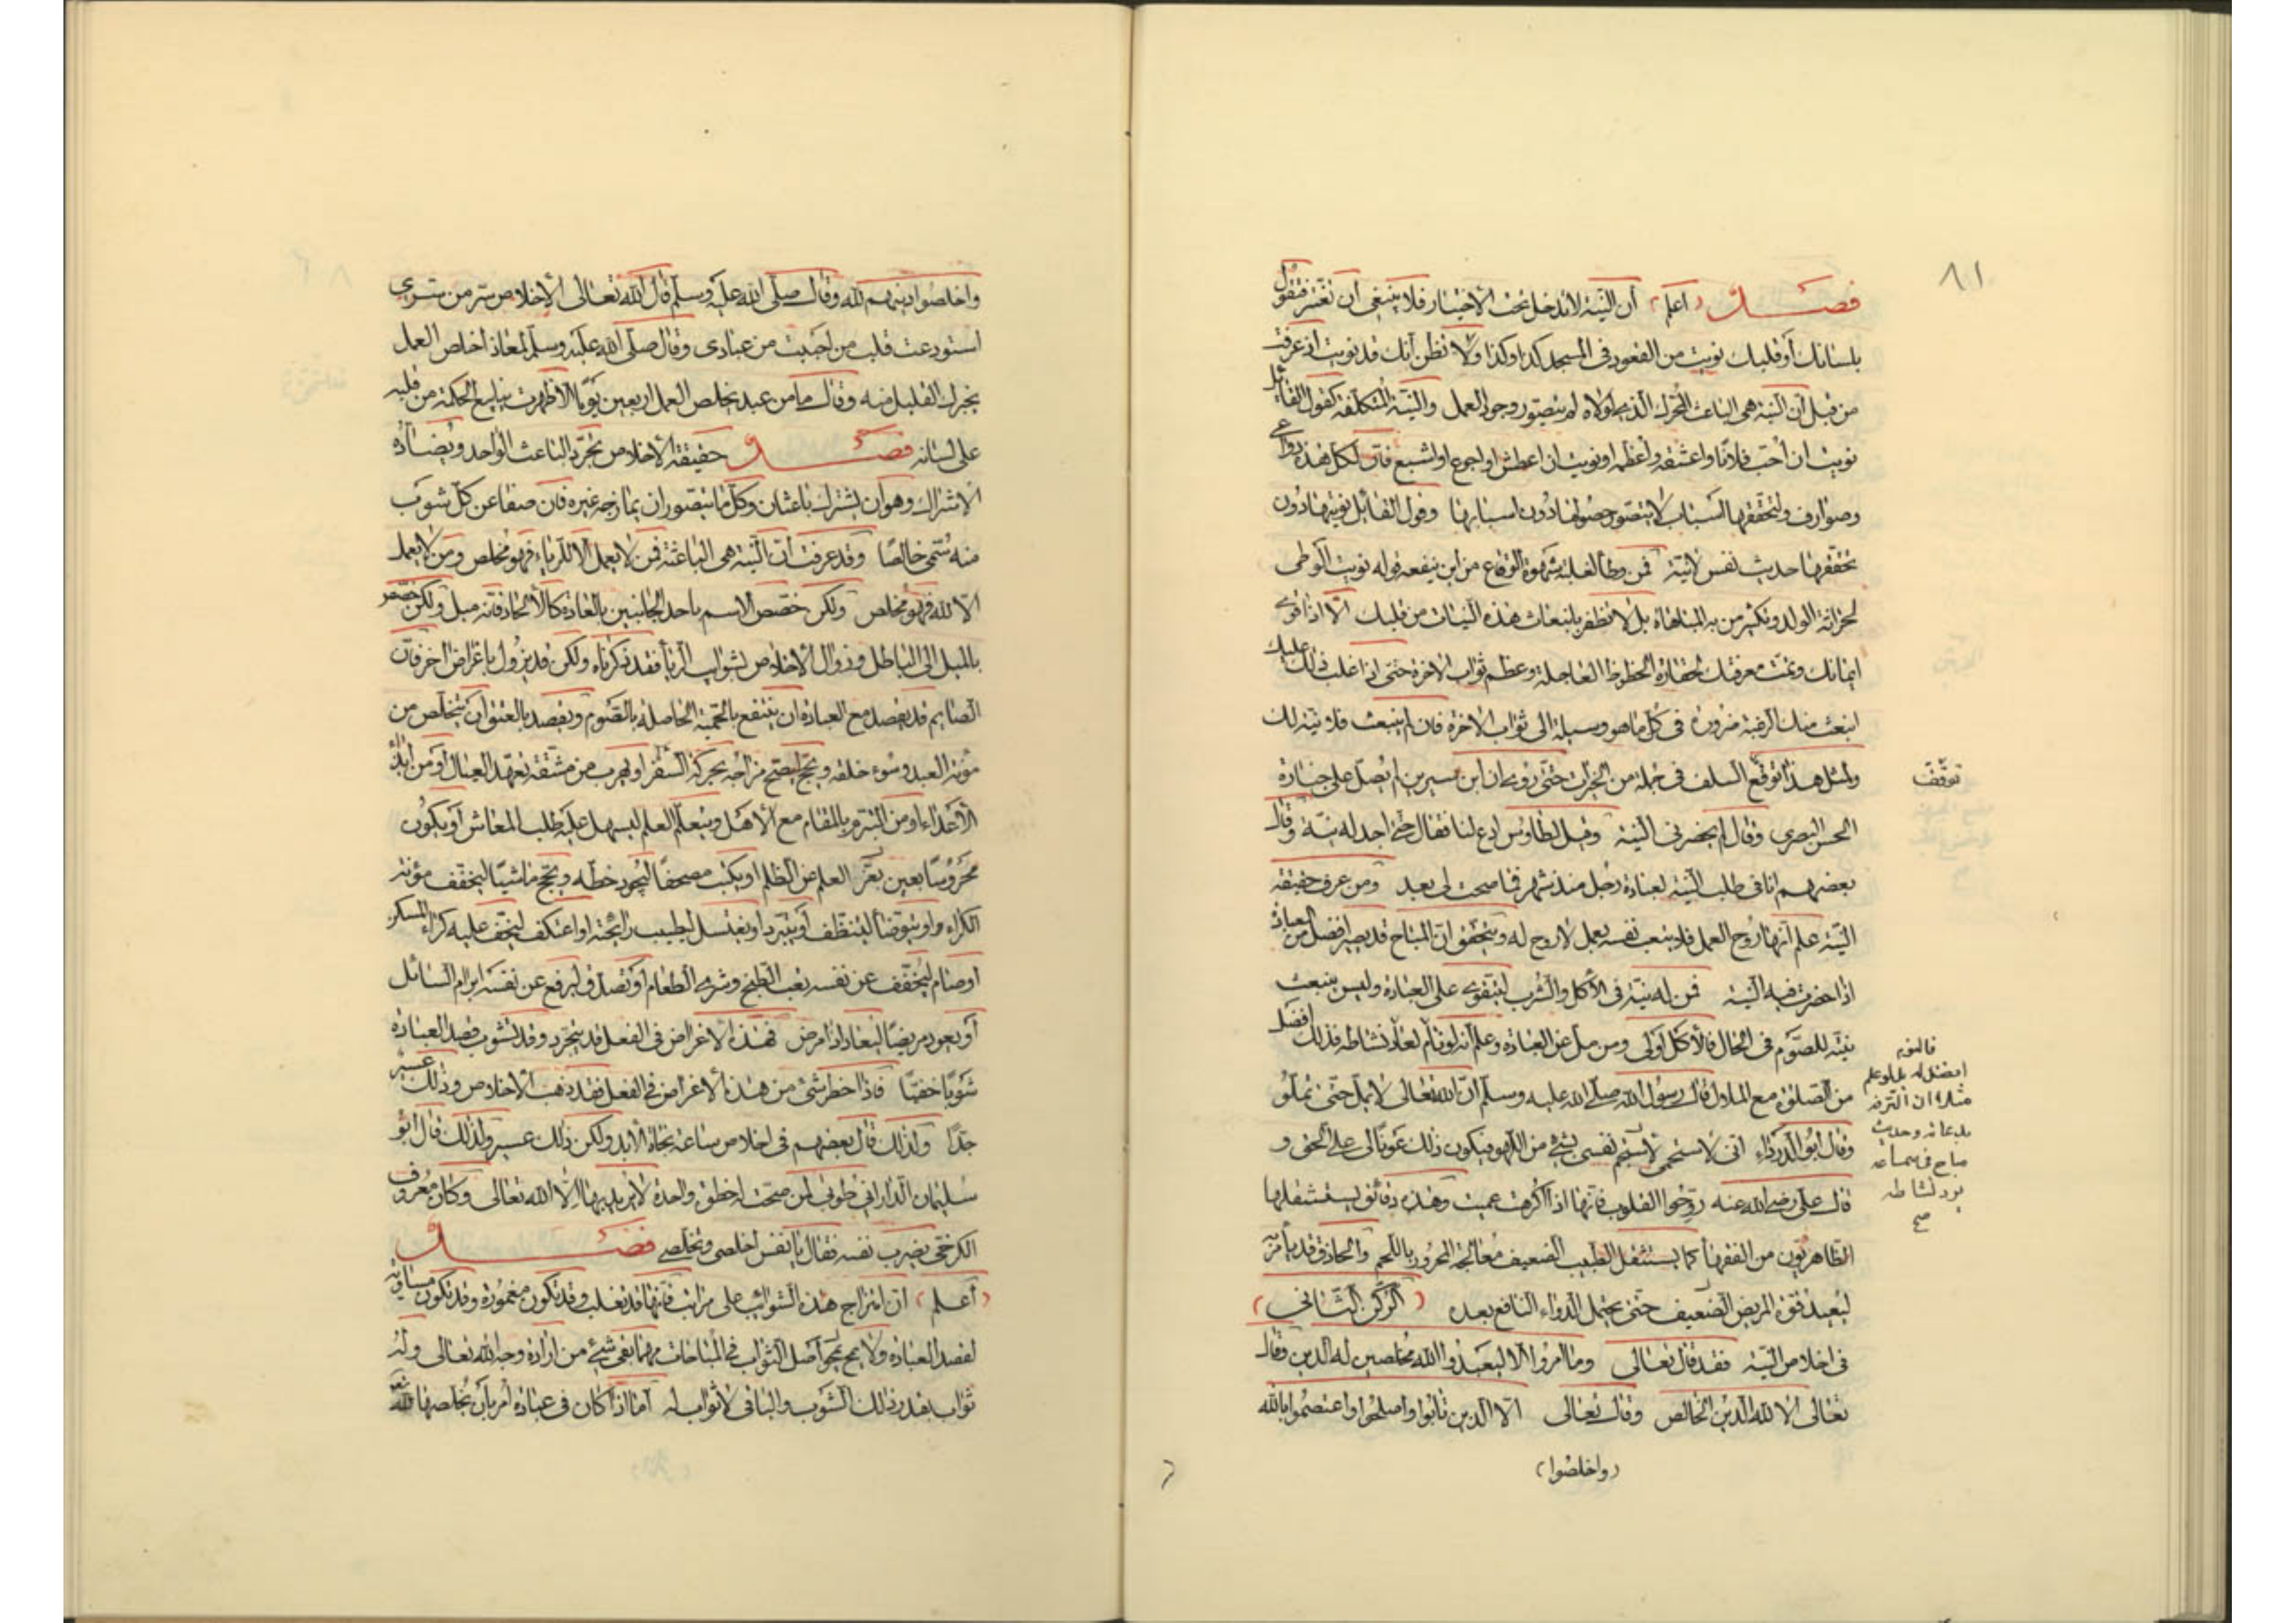 ٨١
فصل (اعلم) أن النية لا تدخل تحت الاختيار فلا ينبغي أن تغتر فتقول
بلسانك أو قلبك نويت من القعود في المسجد كذا وكذا ولا تظن أنك قد نويت اذ عرفت
من قبل أن النية هي الباعث المحرك الذي لولاه لم يتصور وجود العمل والنية المتكلفة كقول القائل
نويت ان أحب فلانا واعشقه واعظمه او نويت ان اعطش او اجوع او اشبع فان لكل هذه دواعي
وصوارف ولتحققها اسباب لا يتصور حصولها دون اسبابها وقول القائل نويتها دون
تحققها حديث نفس لا نية فمن وطأ لغلبة شهوة الوقاع من اين ينفعه قوله نويت الوطى
لحراثة الولد وتكثير من به المباهاة بل لا تظفر بانبعاث هذه النيات من قلبك الا اذا قوى
ايمانك وتمت معرفتك بحقارة الحظوظ العاجلة وعظم ثواب الاخرة حتى اذا غلب ذلك عليك
انبعث منك الرغبة ضرورة في كل ما هو وسيلة الى ثواب الاخرة فان لم ينبعث فلا نية لك
ولمثل هذا توقع السلف في جملة من الخيرات حتى روى ان ابن سيرين لم يصل على جنازة
توقف
الحسن البصري وقال لم يحضرني النية وقيل لطاوس ادع لنا فقال حتى اجد له نية وقال
بعضهم انا في طلب النية لعيادة رجل منذ شهر فما صحت لى بعد ومن عرف حقيقة
النية علم أنها روح العمل فلا يتعب نفسه بعمل لا روح له ويتحقق ان المباح قد يصير افضل من العبادة
اذا حضرت فيه النية فمن له نية في الأكل والشرب ليتقوى على العبادة وليس ينبعث
نيته للصوم في الحال فالأكل أولى ومن مل عن العبادة وعلم أنه لو نام لعاد نشاطه فذلك افضل
من الصلوة مع الملال قال رسول الله صلى الله عليه وسلم ان الله تعالى لا يمل حتى تملوا
فالنوم
افضل له بل لو علم
مثلا ان الترفه
بدعابة وحديث
مباح في ساعة
يرد نشاطه
صح
وقال ابو الدرداء انى لاستجم نفسى بشئ من اللهو فيكون ذلك عونا لى على الحق و
قال على رضى الله عنه روحوا القلوب فانها اذا اكرهت عميت وهذه دقائق يستثقلها
الظاهريون من الفقهاء كما يستثقل الطبيب الضعيف معالجة المحرور باللحم والحاذق قد يأمر به
ليعيد قوة المريض الضعيف حتى يحتمل الدواء النافع بعده (الركن الثاني)
في اخلاص النية فقد قال تعالى وما امروا الا ليعبدوا الله مخلصين له الدين وقال
تعالى الا لله الدين الخالص وقال تعالى الا الذين تابوا واصلحوا واعتصموا بالله
(واخلصوا)
واخلصوا دينهم لله وقال صلى الله عليه وسلم قال الله تعالى الإخلاص سر من سرى
استودعت قلب من احببت من عبادى وقال صلى الله عليه وسلم لمعاذ اخلص العمل
يجزك القليل منه وقال ما من عبد يخلص العمل اربعين يوما الا ظهرت ينابيع الحكمة من قلبه
على لسانه فصل حقيقة الاخلاص تجرد الباعث الواحد ويضاده
الاشراك وهو أن يشترك باعثان وكل ما يتصور ان يمازجه غيره فان صفا عن كل شوب
منه سمى خالصا وقد عرفت أن النية هي الباعثة فمن لا يعمل الا للرياء فهو مخلص ومن لا يعمل
الا لله فهو مخلص ولكن خصص الاسم باحد الجانبين بالعادة كالألحاد فانه ميل ولكن خصص
بالميل الى الباطل وزوال الاخلاص بشوايب الريأ فقد ذكرناه ولكن قد يزول باغراض اخر فان
الصايم قد يقصد مع العبادة ان ينتفع بالحمية الحاصلة بالصوم ويقصد بالعتق أن يتخلص من
مؤنة العبد وسوء خلقه ويحج ليصح مزاجه بحركة السفر او يهرب من مشقة تعهد العيال أو من ايذاء
الأعداء او من التبرم بالمقام مع الأهل ويتعلم العلم ليسهل عليه طلب المعاش أو يكون
محروسا بعين بعز العلم من الظلم او يكتب مصحفا ليجود خطه ويحج ماشيا ليخفف مؤنة
الكراء او يتوضأ ليتنظف أو يتبرد او يغتسل لطيب رائحته او اعتكف ليخف عليه كراء المسكن
أو صام ليخفف عن نفسه تعب الطبخ وشرى الطعام أو تصدق ليرفع عن نفسه ابرام السائل
أو يعود مريضا ليعاد اذا مرض فهذه الاغراض في الفعل قد يتجرد وقد تشوب قصد العبادة
شوبا خفيا فاذا خطر شئ من هذه الاغراض في الفعل فقد ذهب الاخلاص وذلك عسير
جدا ولذلك قال بعضهم في اخلاص ساعة نجاة الأبد ولكن ذلك عسير ولذلك قال ابو
سليمان الدارانى طوبى لمن صحت له خطوة واحدة لا يريد بها الا الله تعالى وكان معروف
الكرخى يضرب نفسه فقال يا نفس اخلصى وتخلصى فصل
(أعلم) ان امتزاج هذه الشوائب على مراتب فانها قد تغلب وقد تكون مغمورة وقد تكون مساوية
لقصد العبادة ولا يحبط أصل الثواب في المباحات مهما بقى شئ من ارادة وجه الله تعالى وله
ثواب بقدر ذلك الشوب والباقى لا ثواب له أما اذا كان في عبادة أمر بأن يخلصها لله